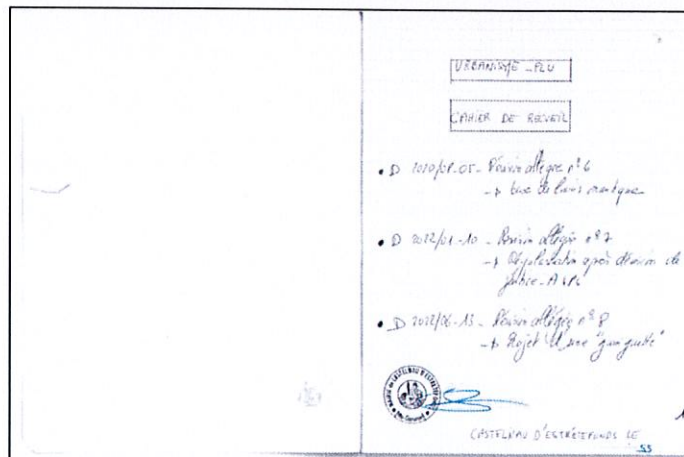 URBANISME - PLU
CAHIER DE RECUEIL
• D 2020/08-05 - Révision allégée n° 6
→ base de loisirs nautique
• D 2022/01-10 - Révision allégée n° 7
→ Régularisation après décision de
justice - A
• D 2022/06-13 - Révision allégée n° 8
→ Projet d'une "guinguette"
MAIRIE de CASTELNAU D'ESTRETEFONDS
CASTELNAU D'ESTRÉTEFONDS LE
53
1